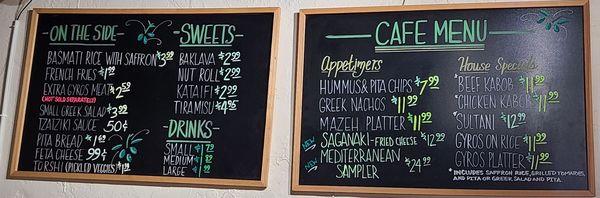 ON THE SIDE
BASMATI RICE WITH SAFFRON $3.99
FRENCH FRIES
EXTRA GYROS MEAT $2.50
(NOT SOLD SEPARATELY)
SMALL GREEK SALAD $3.99
TZATZIKI SAUCE 50¢
PITA BREAD $1.69
FETA CHEESE 99¢
TORSHI (PICKLED VEGGIES)
SWEETS
BAKLAVA
NUT ROLL
KATAIFI
TIRAMISU $4.95
DRINKS
SMALL
MEDIUM
LARGE
CAFE MENU
Appetizers
HUMMUS & PITA CHIPS $7.99
GREEK NACHOS $11.99
MAZEH PLATTER $11.99
NEW SAGANAKI-FRIED CHEESE $12.99
NEW MEDITERRANEAN
SAMPLER $24.99
House Specials
*BEEF KABOB
*CHICKEN KABOB
*SULTANI $12.99
GYROS ON RICE $11.99
GYROS PLATTER $11.99
*INCLUDES SAFFRON RICE, GRILLED TOMATOES,
AND PITA OR GREEK SALAD AND PITA